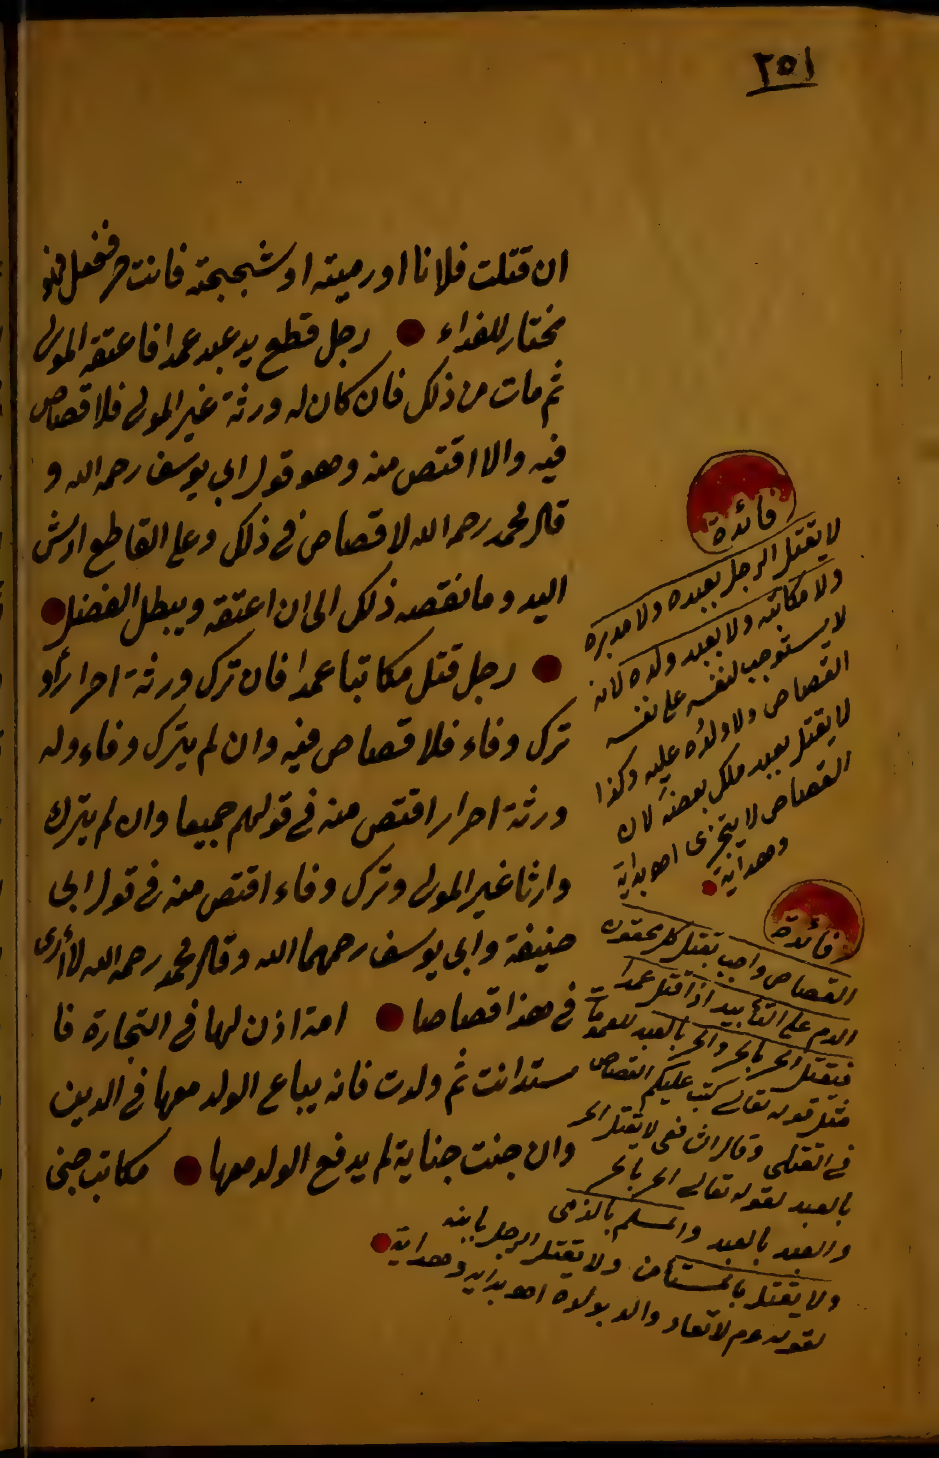 ٢٥١
ان قتلت فلانا او رميته او شججته فانت حر ففعل فهو
مختار للفداء ● رجل قطع يد عبد عمدا فاعتقه المولى
ثم مات من ذلك فان كان له ورثة غير المولى فلا قصاص
فيه والا اقتص منه وهو قول ابى يوسف رحمه الله و
قال محمد رحمه الله لا قصاص فى ذلك وعلى القاطع ارش
اليد وما نقصه ذلك الى ان اعتقه ويبطل الفضل ●
● رجل قتل مكاتبا عمدا فان ترك ورثة احرارا و
ترك وفاء فلا قصاص فيه وان لم يترك وفاء وله
ورثة احرار اقتص منه فى قولهم جميعا وان لم يترك
وارثا غير المولى وترك وفاء اقتص منه فى قول ابى
حنيفة وابى يوسف رحمهما الله وقال محمد رحمه الله لا أرى
فى هذا قصاصا ● امة اذن لها فى التجارة فا
ستدانت ثم ولدت فانه يباع الولد معها فى الدين
وان جنت جناية لم يدفع الولد معها ● مكاتب جنى
فائدة
لا يقتل الرجل بعبده ولا مدبره
ولا مكاتبه ولا بعبد ولده لانه
لا يستوجب لنفسه على نفسه
القصاص ولا ولده عليه وكذا
لا يقتل بعبد ملك بعضه لان
القصاص لا يتجزى اهو بداية
وهداية ●
فائدة
القصاص واجب بقتل كل محقون
الدم على التأبيد اذا قتل عمدا
فيقتل الحر بالحر والحر بالعبد للعمومات
مثل قوله تعالى كتب عليكم القصاص
فى القتلى وقال الشافعى لا يقتل الحر
بالعبد لقوله تعالى الحر بالحر
والعبد بالعبد والمسلم بالذمى
ولا يقتل بالمستامن ولا يقتل الرجل بابنه
لقوله عم لا يقاد والد بولده اهو بدايه وهداية ●